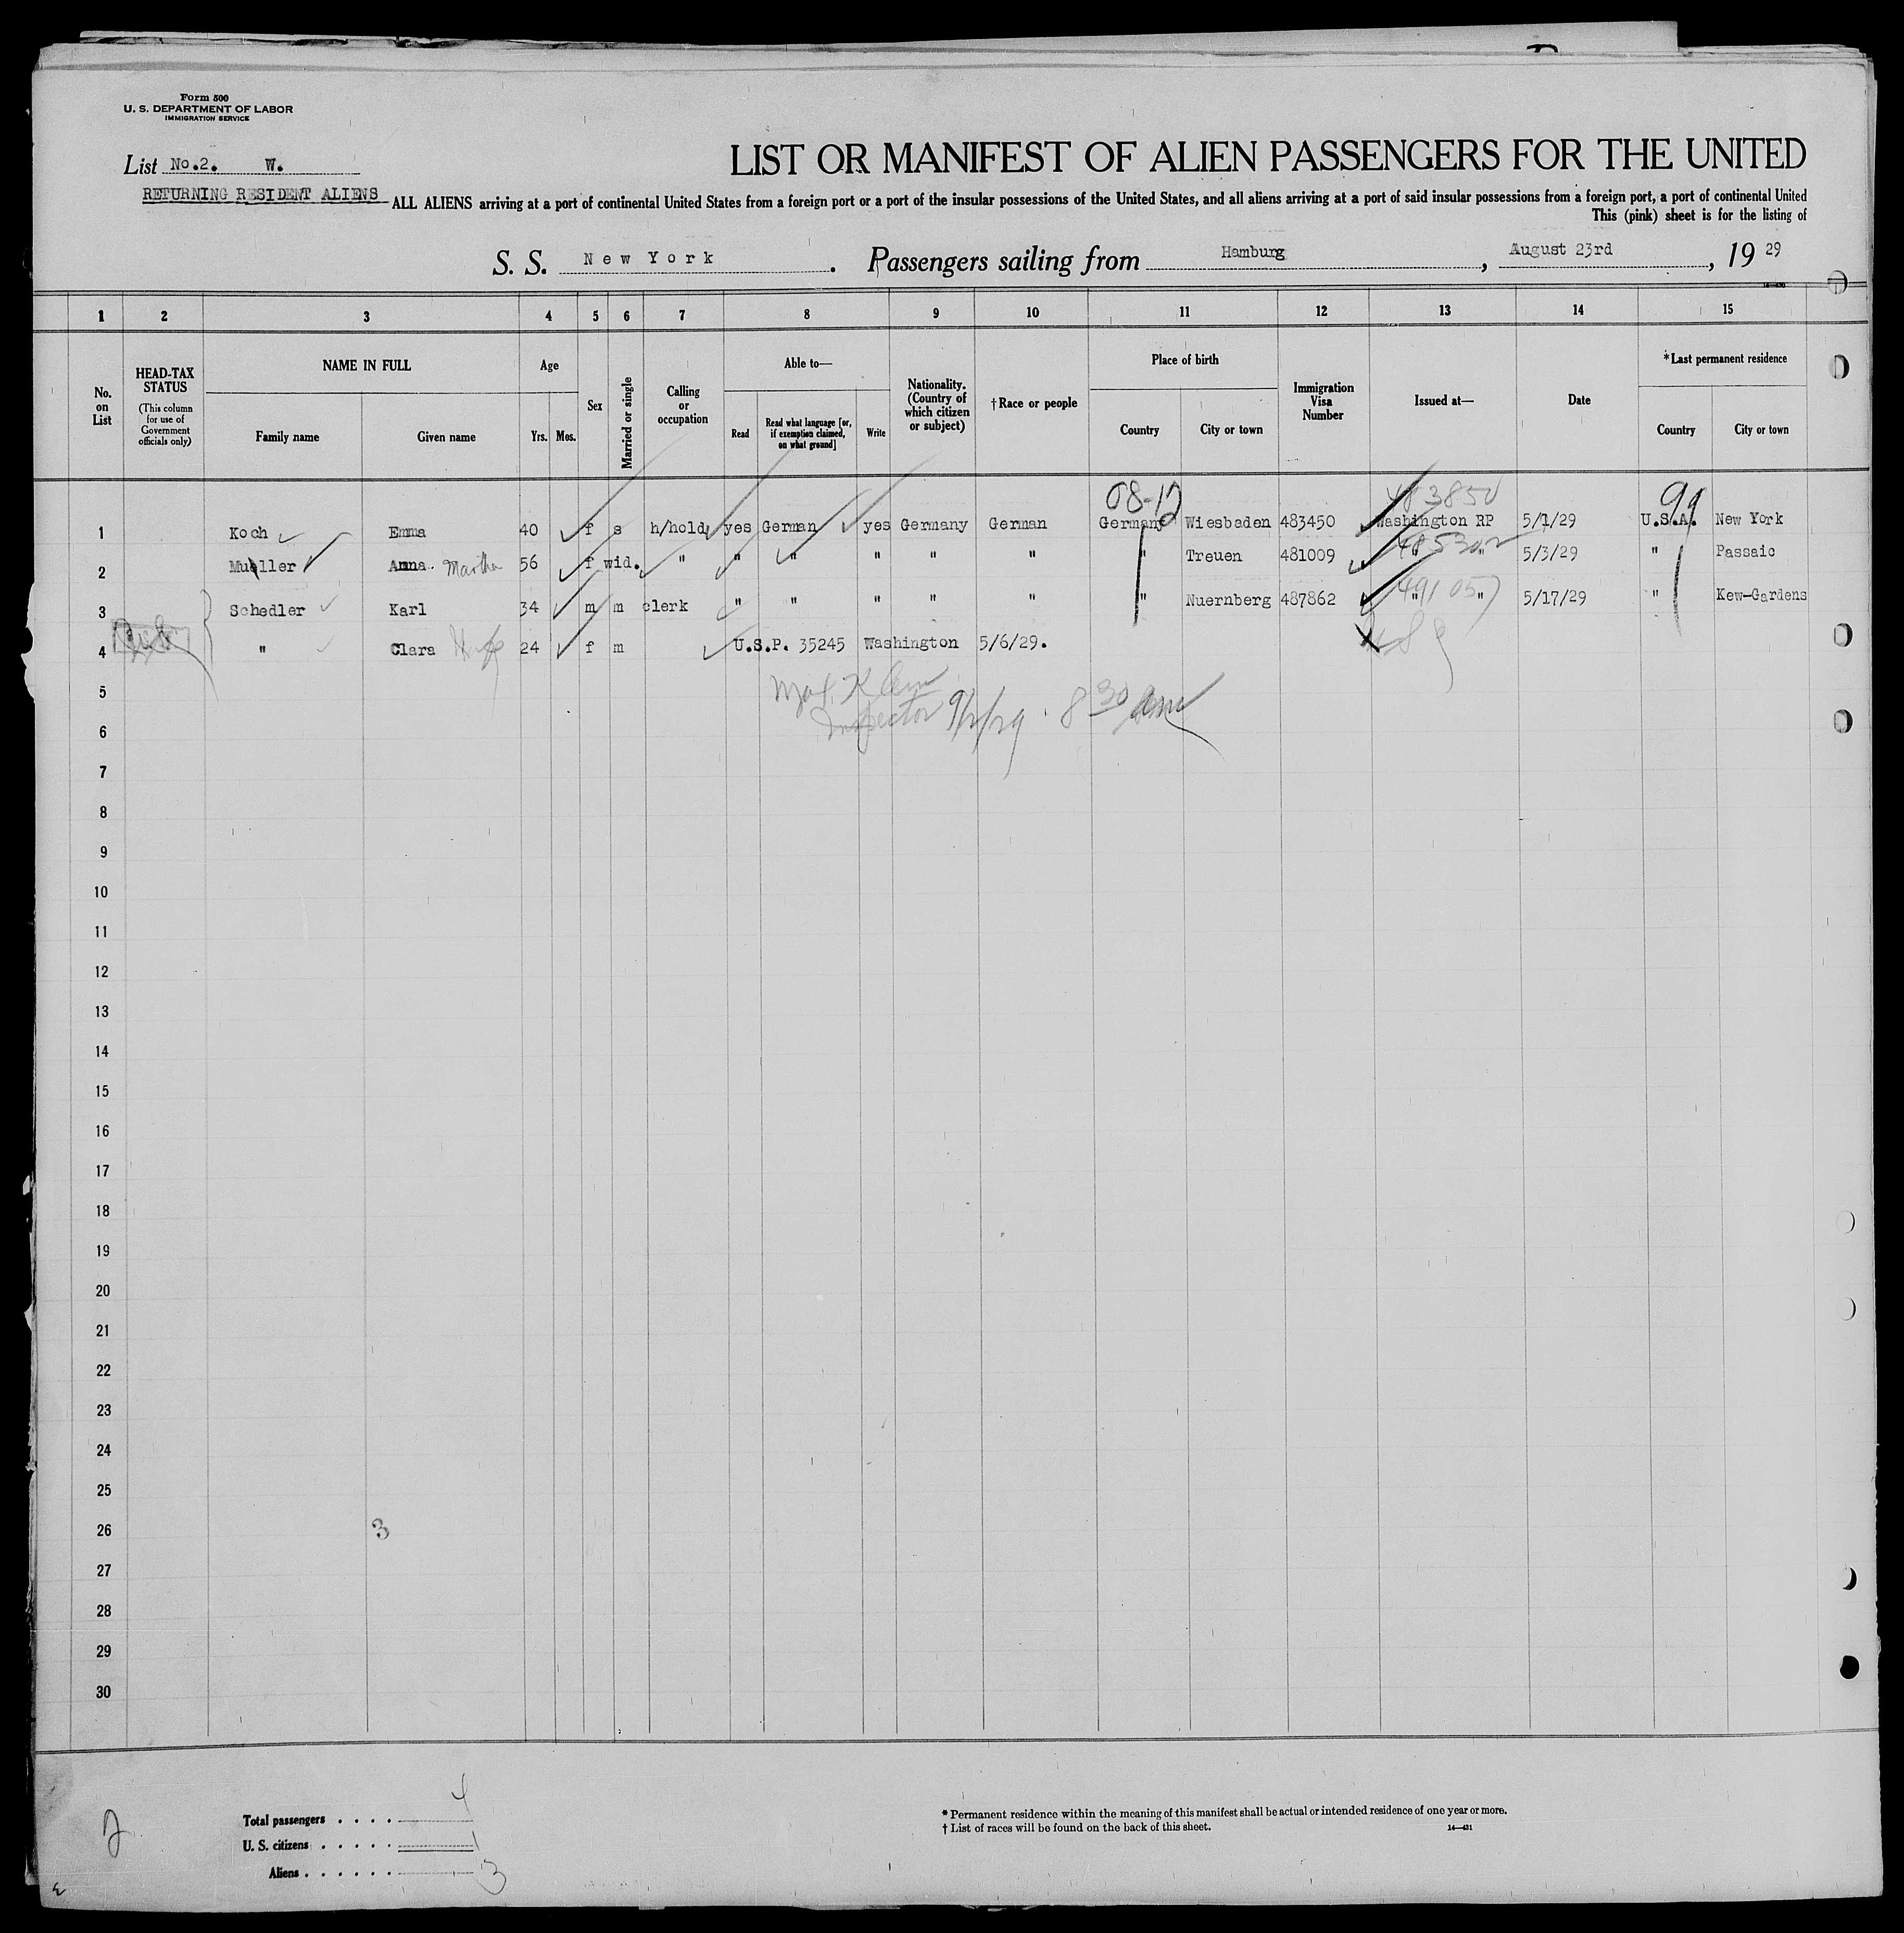 Form 500
U. S. DEPARTMENT OF LABOR
IMMIGRATION SERVICE
List No.2. W.
LIST OR MANIFEST OF ALIEN PASSENGERS FOR THE UNITED
RETURNING RESIDENT ALIENS
ALL ALIENS arriving at a port of continental United States from a foreign port or a port of the insular possessions of the United States, and all aliens arriving at a port of said insular possessions from a foreign port, a port of continental United
This (pink) sheet is for the listing of
S. S. New York. Passengers sailing from Hamburg, August 23rd, 19 29
1 2 3 4 5 6 7 8 9 10 11 12 13 14 15
No. on List
HEAD-TAX STATUS (This column for use of Government officials only)
NAME IN FULL
Family name
Given name
Age
Yrs. Mos.
Sex
Married or single
Calling or occupation
Able to—
Read
Read what language [or, if exemption claimed, on what ground]
Write
Nationality. (Country of which citizen or subject)
†Race or people
Place of birth
Country
City or town
Immigration Visa Number
Issued at—
Date
*Last permanent residence
Country
City or town
08-12 483850 99
1 Koch Emma 40 f s h/hold yes German yes Germany German Germany Wiesbaden 483450 Washington RP 5/1/29 U.S.A. New York
2 Mueller Anna. Martha 56 f wid. " " " " " " " Treuen 481009 " " 5/3/29 " Passaic
491057
3 Schedler Karl 34 m m clerk " " " " " " Nuernberg 487862 " " 5/17/29 " Kew-Gardens
4 " Clara 24 f m U.S.P. 35245 Washington 5/6/29.
5
Inspector 9/2/29 . 8 30 am
6
7
8
9
10
11
12
13
14
15
16
17
18
19
20
21
22
23
24
25
26 3
27
28
29
30
2
Total passengers . . . . 4
U. S. citizens . . . . . 1
Aliens . . . . . . 3
* Permanent residence within the meaning of this manifest shall be actual or intended residence of one year or more.
† List of races will be found on the back of this sheet.
14—431